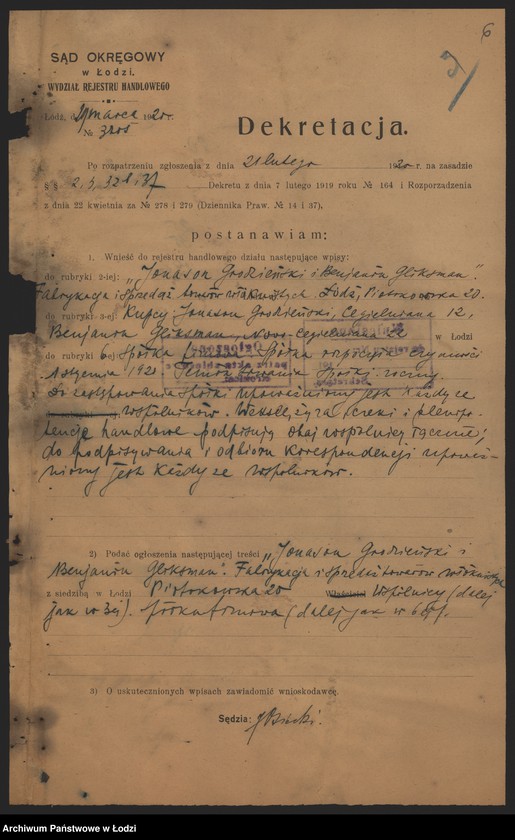 6
SĄD OKRĘGOWY
w Łodzi.
WYDZIAŁ REJESTRU HANDLOWEGO
Łódź, d. marca 1920 r.
№
Dekretacja.
Po rozpatrzeniu zgłoszenia z dnia 21 lutego 1920 r. na zasadzie
§ § Dekretu z dnia 7 lutego 1919 roku № 164 i Rozporządzenia
z dnia 22 kwietnia za № 278 i 279 (Dziennika Praw. № 14 i 37),
postanawiam:
1. Wnieść do rejestru handlowego działu następujące wpisy:
do rubryki 2-iej: „Jonason Grodzieński i Benjamin Gliksman".
Fabrykacja i sprzedaż towarów włóknistych. Łódź, Piotrkowska 20.
do rubryki 3-iej: Kupcy Jonason Grodzieński, Cegielniana 12,
Benjamin Gliksman, Nowo-Cegielniana 22 w Łodzi
do rubryki 6ej Spółka firmowa. Spółka rozpoczęła czynności
stycznia 1921. Termin trwania Spółki roczny.
Do zastępowania Spółki upoważniony jest każdy ze
wspólników. Weksle, żyra, czeki i plenipo-
tencje handlowe podpisują obaj wspólnicy łącznie;
do podpisywania i odbioru korespondencji upoważ-
niony jest każdy ze wspólników.
2) Podać ogłoszenia następującej treści „Jonason Grodzieński i
Benjamin Gliksman". Fabrykacja i sprzedaż towarów włóknistych
z siedzibą w Łodzi Piotrkowska 20 Właściciel Wspólnicy (dalej
jak w 3ej). Spółka firmowa (dalej jak w 6ej).
3) O uskutecznionych wpisach zawiadomić wnioskodawcę.
Sędzia:
Archiwum Państwowe w Łodzi